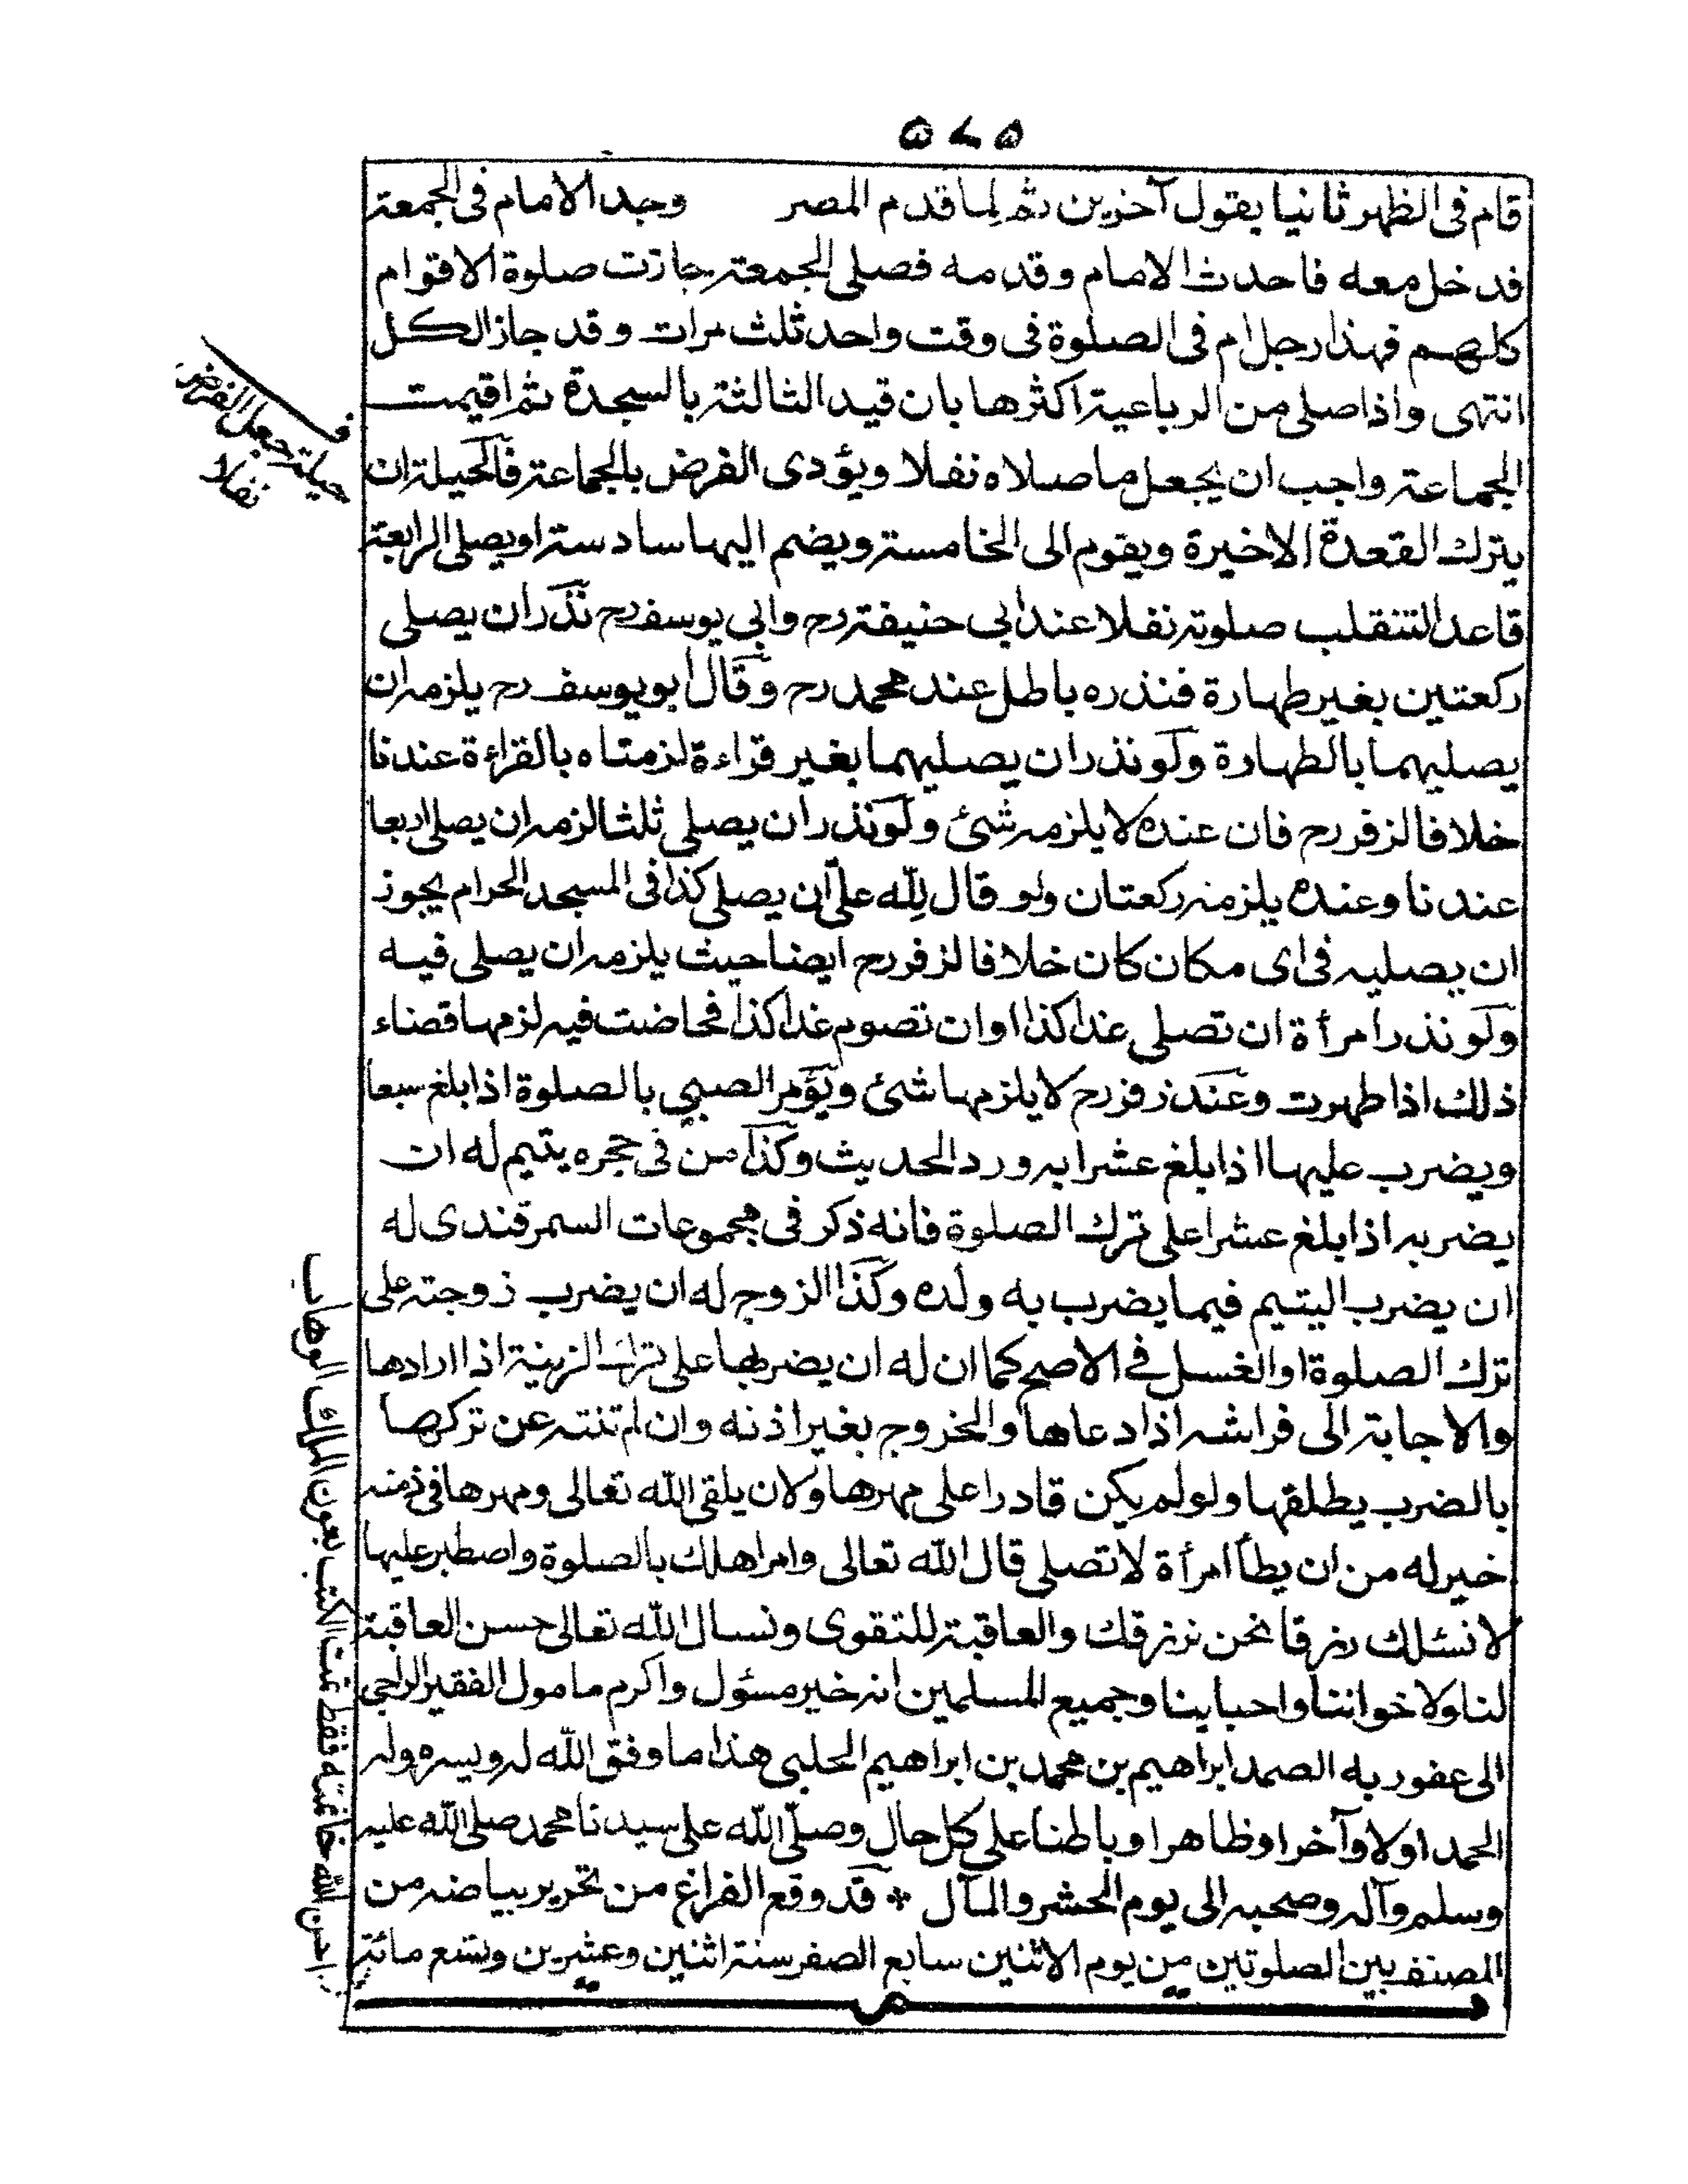 ٥٨٥
قام فى الظهر ثانيا يقول آخرين ثم لما قدم المصر وجد الامام فى الجمعة
فدخل معه فاحدث الامام وقدمه فصلى الجمعة جازت صلوة الاقوام
كلهم فهذا رجل ام فى الصلوة فى وقت واحد ثلث مرات وقد جاز الكل
انتهى واذا صلى من الرباعية اكثرها بان قيد الثالثة بالسجدة ثم اقيمت
الجماعة واجب ان يجعل ما صلاه نفلا ويؤدى الفرض بالجماعة فالحيلة ان
يترك القعدة الاخيرة ويقوم الى الخامسة ويضم اليها سادسة او يصلى الرابعة
قاعدا لتنقلب صلوته نفلا عند ابى حنيفة رح وابى يوسف رح نذر ان يصلى
ركعتين بغير طهارة فنذره باطل عند محمد رح وقال ابو يوسف رح يلزمه ان
يصليهما بالطهارة ولو نذر ان يصليهما بغير قراءة لزمتاه بالقراءة عندنا
خلافا لزفر رح فان عنده لا يلزمه شئ ولو نذر ان يصلى ثلثا لزمه ان يصلى اربعا
عندنا وعنده يلزمه ركعتان ولو قال لله على ان يصلى كذا فى المسجد الحرام يجوز
ان يصليه فى اى مكان كان خلافا لزفر رح ايضا حيث يلزمه ان يصلى فيه
ولو نذر امرأة ان تصلى غدا كذا او ان تصوم غدا كذا فحاضت فيه لزمها قضاء
ذلك اذا طهرت وعند زفر رح لا يلزمها شئ ويؤمر الصبى بالصلوة اذا بلغ سبعا
ويضرب عليها اذا بلغ عشرا به ورد الحديث وكذا من فى حجره يتيم له ان
يضربه اذا بلغ عشرا على ترك الصلوة فانه ذكر فى مجموعات السمرقندى له
ان يضرب اليتيم فيما يضرب به ولده وكذا الزوج له ان يضرب زوجته على
ترك الصلوة او الغسل فى الاصح كما ان له ان يضربها على ترك الزينة اذا ارادها
والاجابة الى فراشه اذا دعاها والخروج بغير اذنه وان لم تنته عن تركها
بالضرب يطلقها ولو لم يكن قادرا على مهرها ولان يلقى الله تعالى ومهرها فى ذمته
خير له من ان يطأ امرأة لا تصلى قال الله تعالى وامر اهلك بالصلوة واصطبر عليها
لا نسئلك رزقا نحن نرزقك والعاقبة للتقوى ونسال الله تعالى حسن العاقبة
لنا ولاخواننا واحبابنا وجميع المسلمين انه خير مسئول واكرم مامول الفقير الراجى
الى عفو ربه الصمد ابراهيم بن محمد بن ابراهيم الحلبى هذا ما وفق الله له ويسره وله
الحمد اولا وآخرا وظاهرا وباطنا على كل حال وصلى الله على سيدنا محمد صلى الله عليه
وسلم وآله وصحبه الى يوم الحشر والمآل * قد وقع الفراغ من تحرير بياضه من
المصنف بين الصلوتين من يوم الاثنين سابع الصفر سنة اثنين وعشرين وتسع مائة
حيلة جعل الفرض
نفلا
تمت الكتب بعون الملك الوهاب